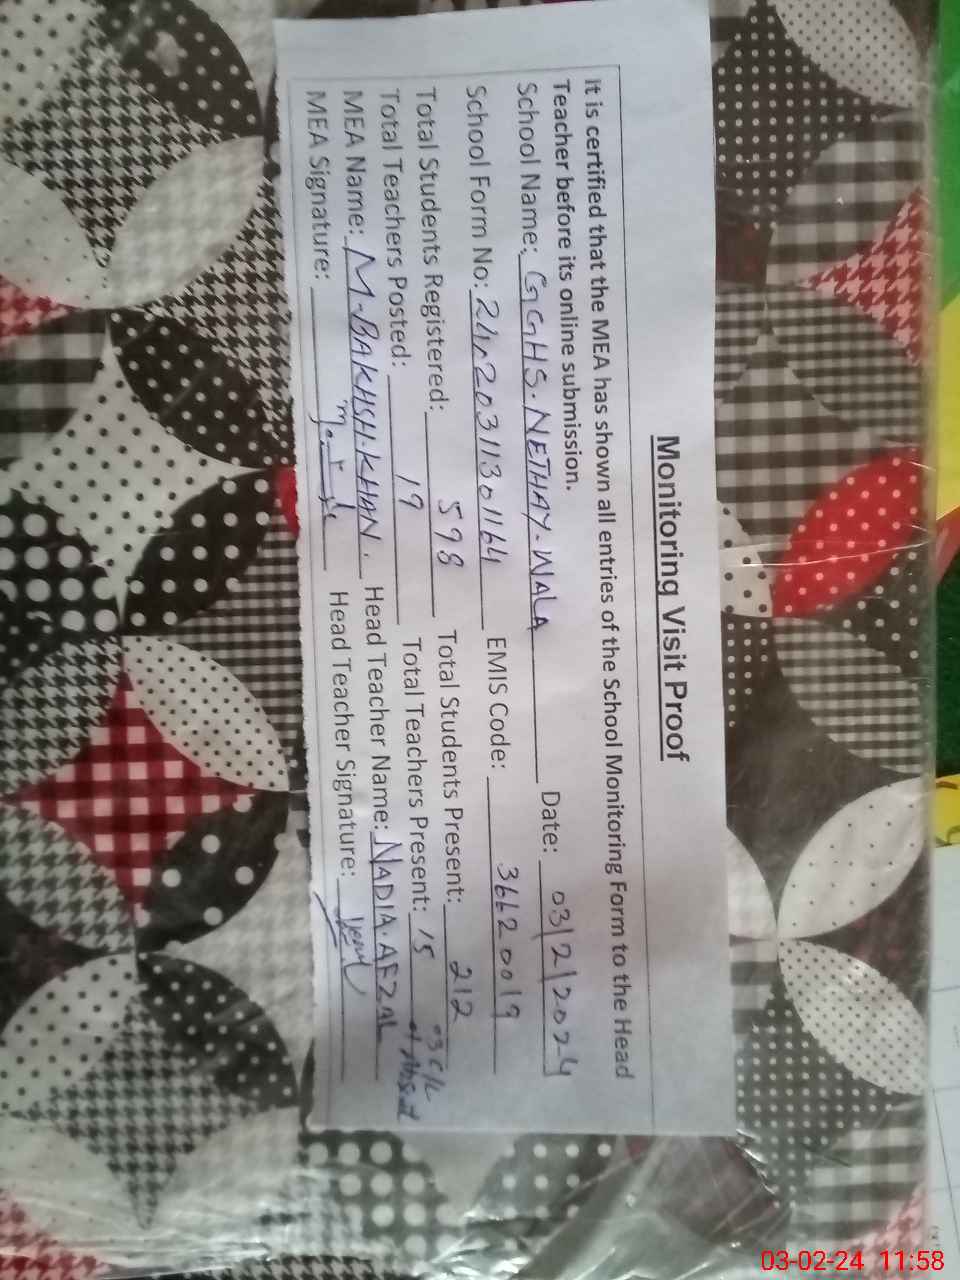 Monitoring Visit Proof
It is certified that the MEA has shown all entries of the School Monitoring Form to the Head
Teacher before its online submission.
School Name: GGHS. NETHAY. WALA Date: 03/2/2024
School Form No: 24r20311301164 EMIS Code: 36620019
Total Students Registered: 598 Total Students Present: 212
Total Teachers Posted: 19 Total Teachers Present: 15 03 C/L
01 Absent
MEA Name: M. BAKHSH. KHAN. Head Teacher Name: NADIA. AFZAL
MEA Signature: Head Teacher Signature:
03-02-24 11:58